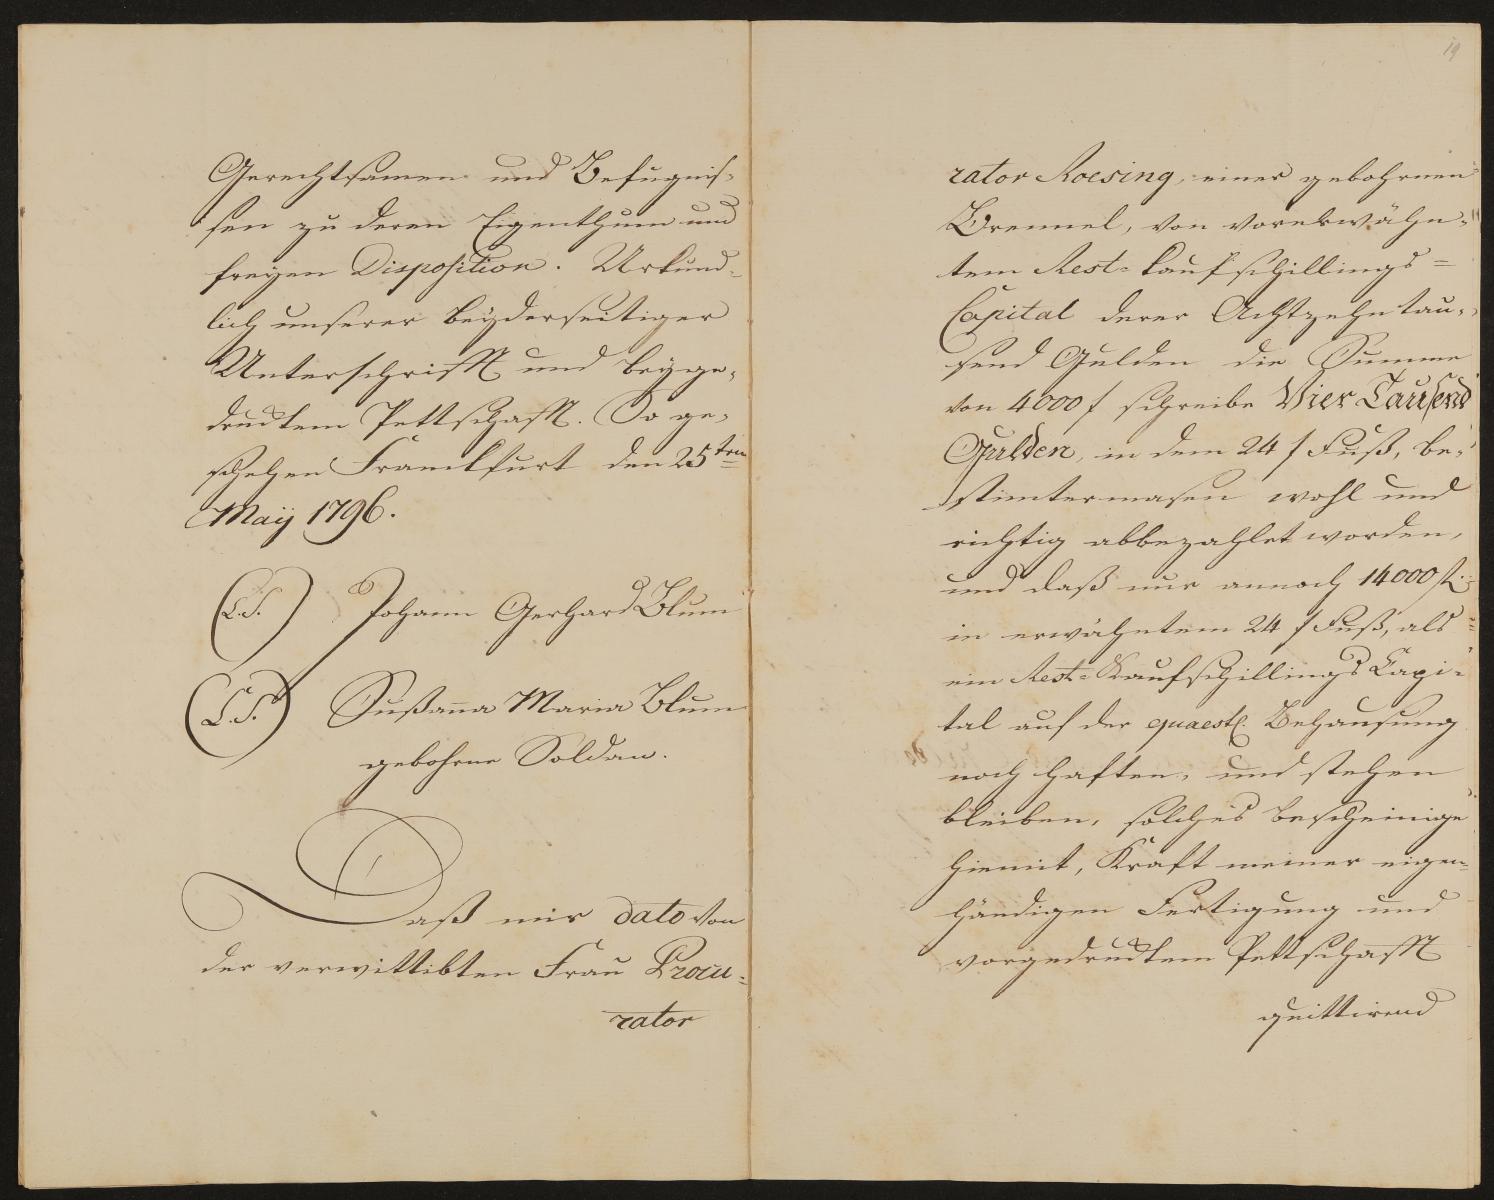 Gerechtsamen und Befugnis-
sen zu deren Eigenthum und
freyen Disposition. Urkund-
lich unserer beyderseitiger
Unterschrifft und beyge-
drucktem Pettschafft. So ge-
schehen Franckfurt den 25ten
Maÿ 1796.
(L.S.) Johann Gerhard Blum
(L.S.) Sußana Maria Blum
gebohrne Soldan.
Daß mir dato von
der verwittibten Frau Procu-
rator
19
rator Roesing, einer gebohrnen
Brennel, von vorerwähn-
tem Rest-Kaufschillings-
Capital derer Achtzehntau-
send Gulden die Summe
von 4000 f schreibe Vier Tausend
Gulden, in dem 24 f Fuß, be-
stimtermasen wohl und
richtig abbezahlet worden,
und daß nur annoch 14000 fl.
in erwähntem 24 f Fuß, als
ein Rest-Kaufschillings Capi-
tal auf der quaest. Behausung
noch haften, und stehen
bleiben, solches bescheinige
hiemit, Kraft meiner eigen-
händigen Fertigung und
vorgedrucktem Pettschafft
quittirend